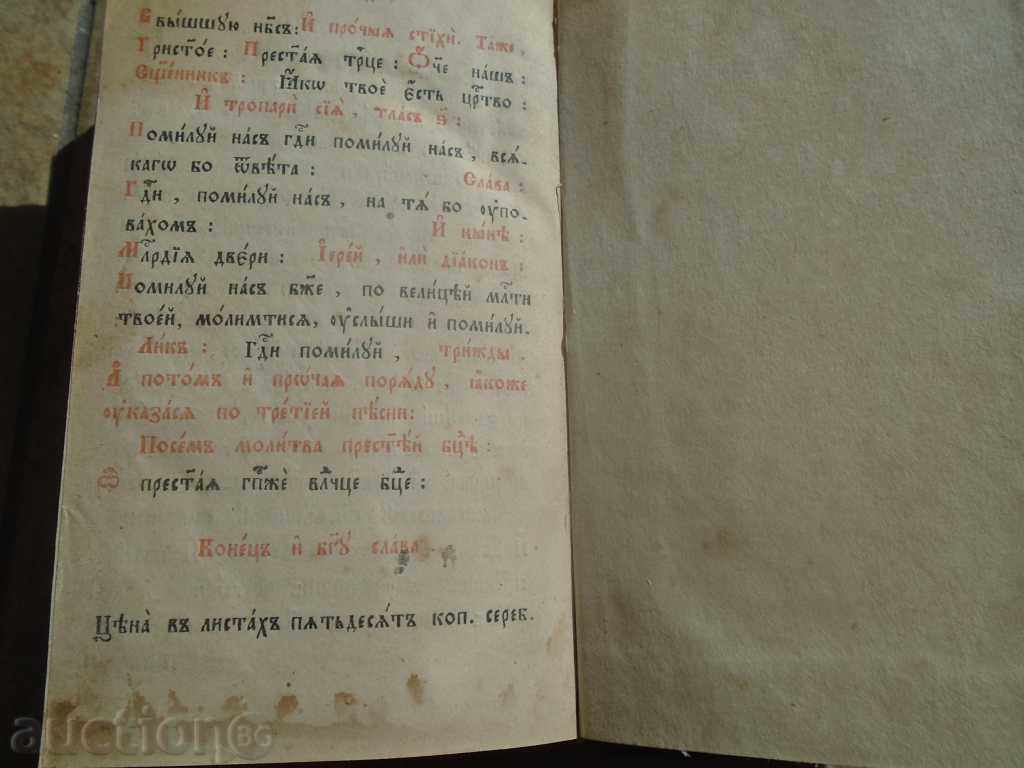 Вы́шшую нб҃съ: И҆ про́чыя стїхѝ. Та́же,
Трист҃о́е: Прест҃а́ѧ трⷪ҇це: Ѻ҆́ч҃е на́шъ:
Сщ҃е́нникъ: Ꙗ҆́кѡ твоѐ є҆́сть црⷭ҇тво:
И҆ тропарѝ сїѧ̑, гла́съ ѕ҃:
Поми́лꙋй на́съ гдⷭ҇и поми́лꙋй на́съ, всѧ́-
кагѡ бо ѿвѣ́та: Сла́ва:
Гдⷭ҇и, поми́лꙋй на́съ, на тѧ́ бо ᲂу҆пова́-
хомъ: И҆ ны́нѣ:
Млⷭ҇рдїѧ две́ри: І҆ере́й, и҆лѝ дїа́конъ:
Поми́лꙋй на́съ бж҃е, по вели́цѣй млⷭ҇ти
твое́й, мо́лимтисѧ, ᲂу҆слы́ши и҆ поми́лꙋй.
Ли́къ: Гдⷭ҇и поми́лꙋй, три́жды.
А҆ пото́мъ и҆ прѡ́чаѧ порѧ́дꙋ, ꙗ҆́коже
ᲂу҆каза́сѧ по тре́тїей пѣ́сни:
Посе́мъ моли́тва прест҃ѣ́й бцⷣѣ:
Ѽ прест҃а́ѧ гпⷭ҇жѐ влⷣчце бцⷣе:
Коне́цъ и҆ бг҃ꙋ сла́ва.
Цѣна̀ въ листа́хъ пѧтьдесѧ́тъ коп. сереб.
auction BG